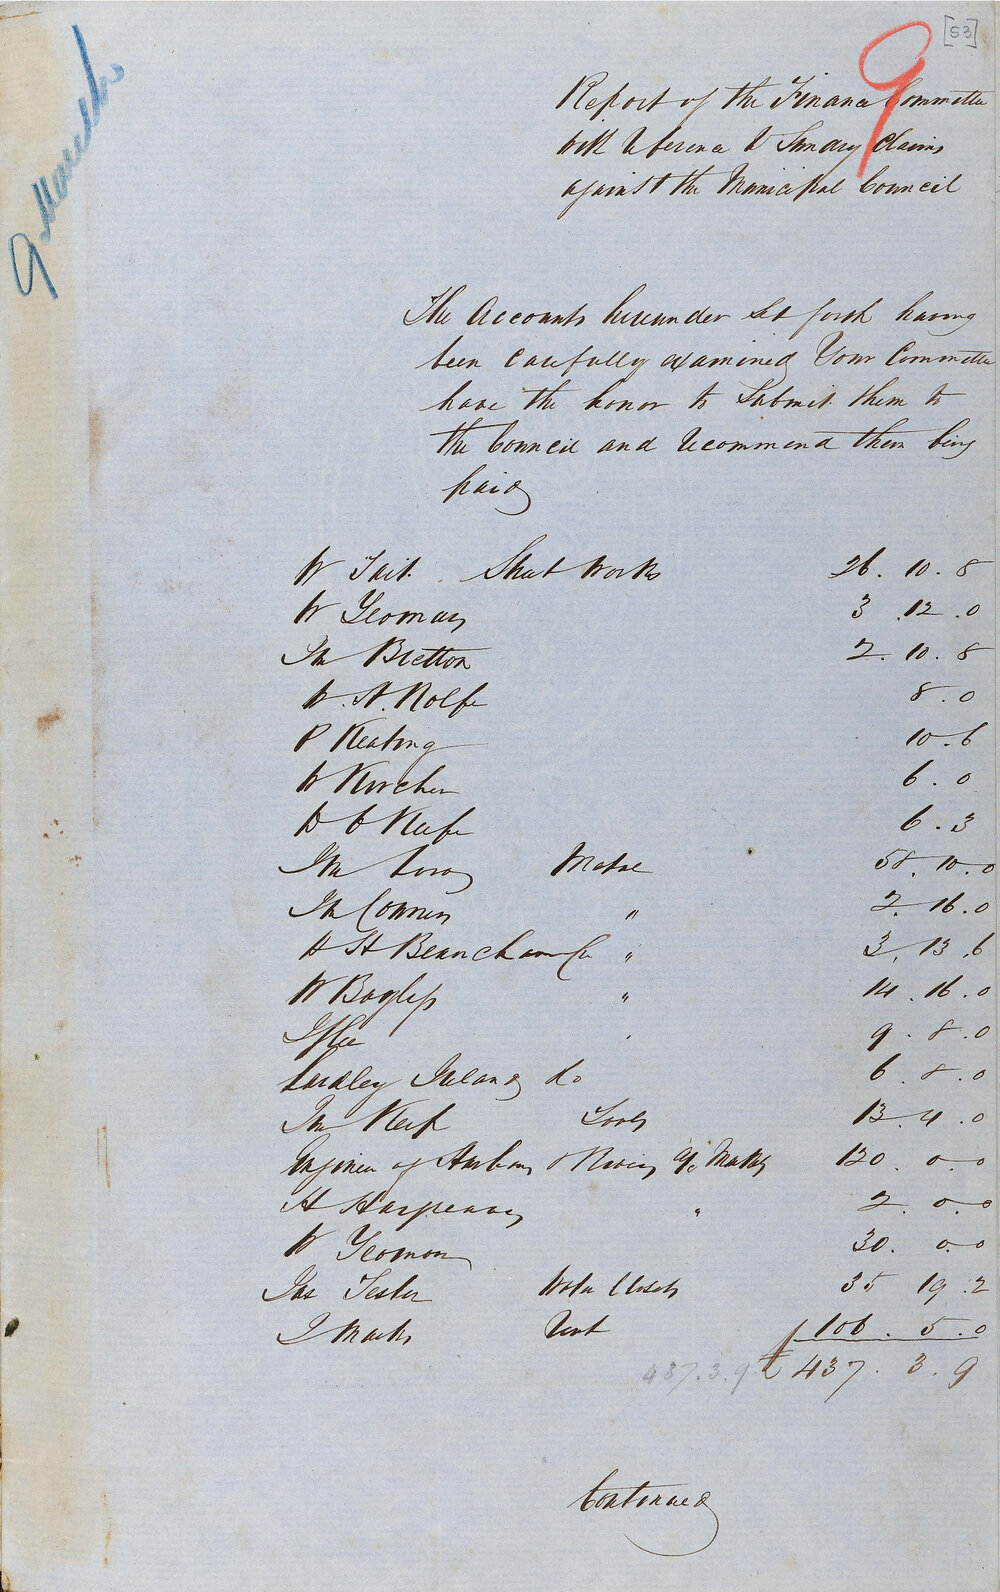 [53]
9
9 March
Report of the Finance Committee
with reference to Sundry Claims
against the Municipal Council
The Accounts hereunder set forth having
been carefully examined Your Committee
have the honor to submit them to
the Council and recommend them being
paid
W Tait. Street Works 26. 10. 8
W Yeoman 3. 12. 0
Jn Bretton 2. 10. 8
W. A. Rolfe 8. 0
P Keating 10. 6
W Kirchen 6. 0
D O Keefe 6. 3
Jn Metal 58. 10. 0
Jn " 2. 16. 0
H H Beauchamp " 3. 13. 6
W Bayliss " 14. 16. 0
9. 8. 0
Lardley Ireland do 6. 8. 0
Jn Keep Tools 13. 4. 0
Engineer of Harbours & Rivers 120. 0. 0
H " 2. 0. 0
W Yeoman 30. 0. 0
Jas Tester Water Closets 35 19. 2
J Marks Rent 106. 5. 0
437. 3. 9 £ 437. 3. 9
Continued